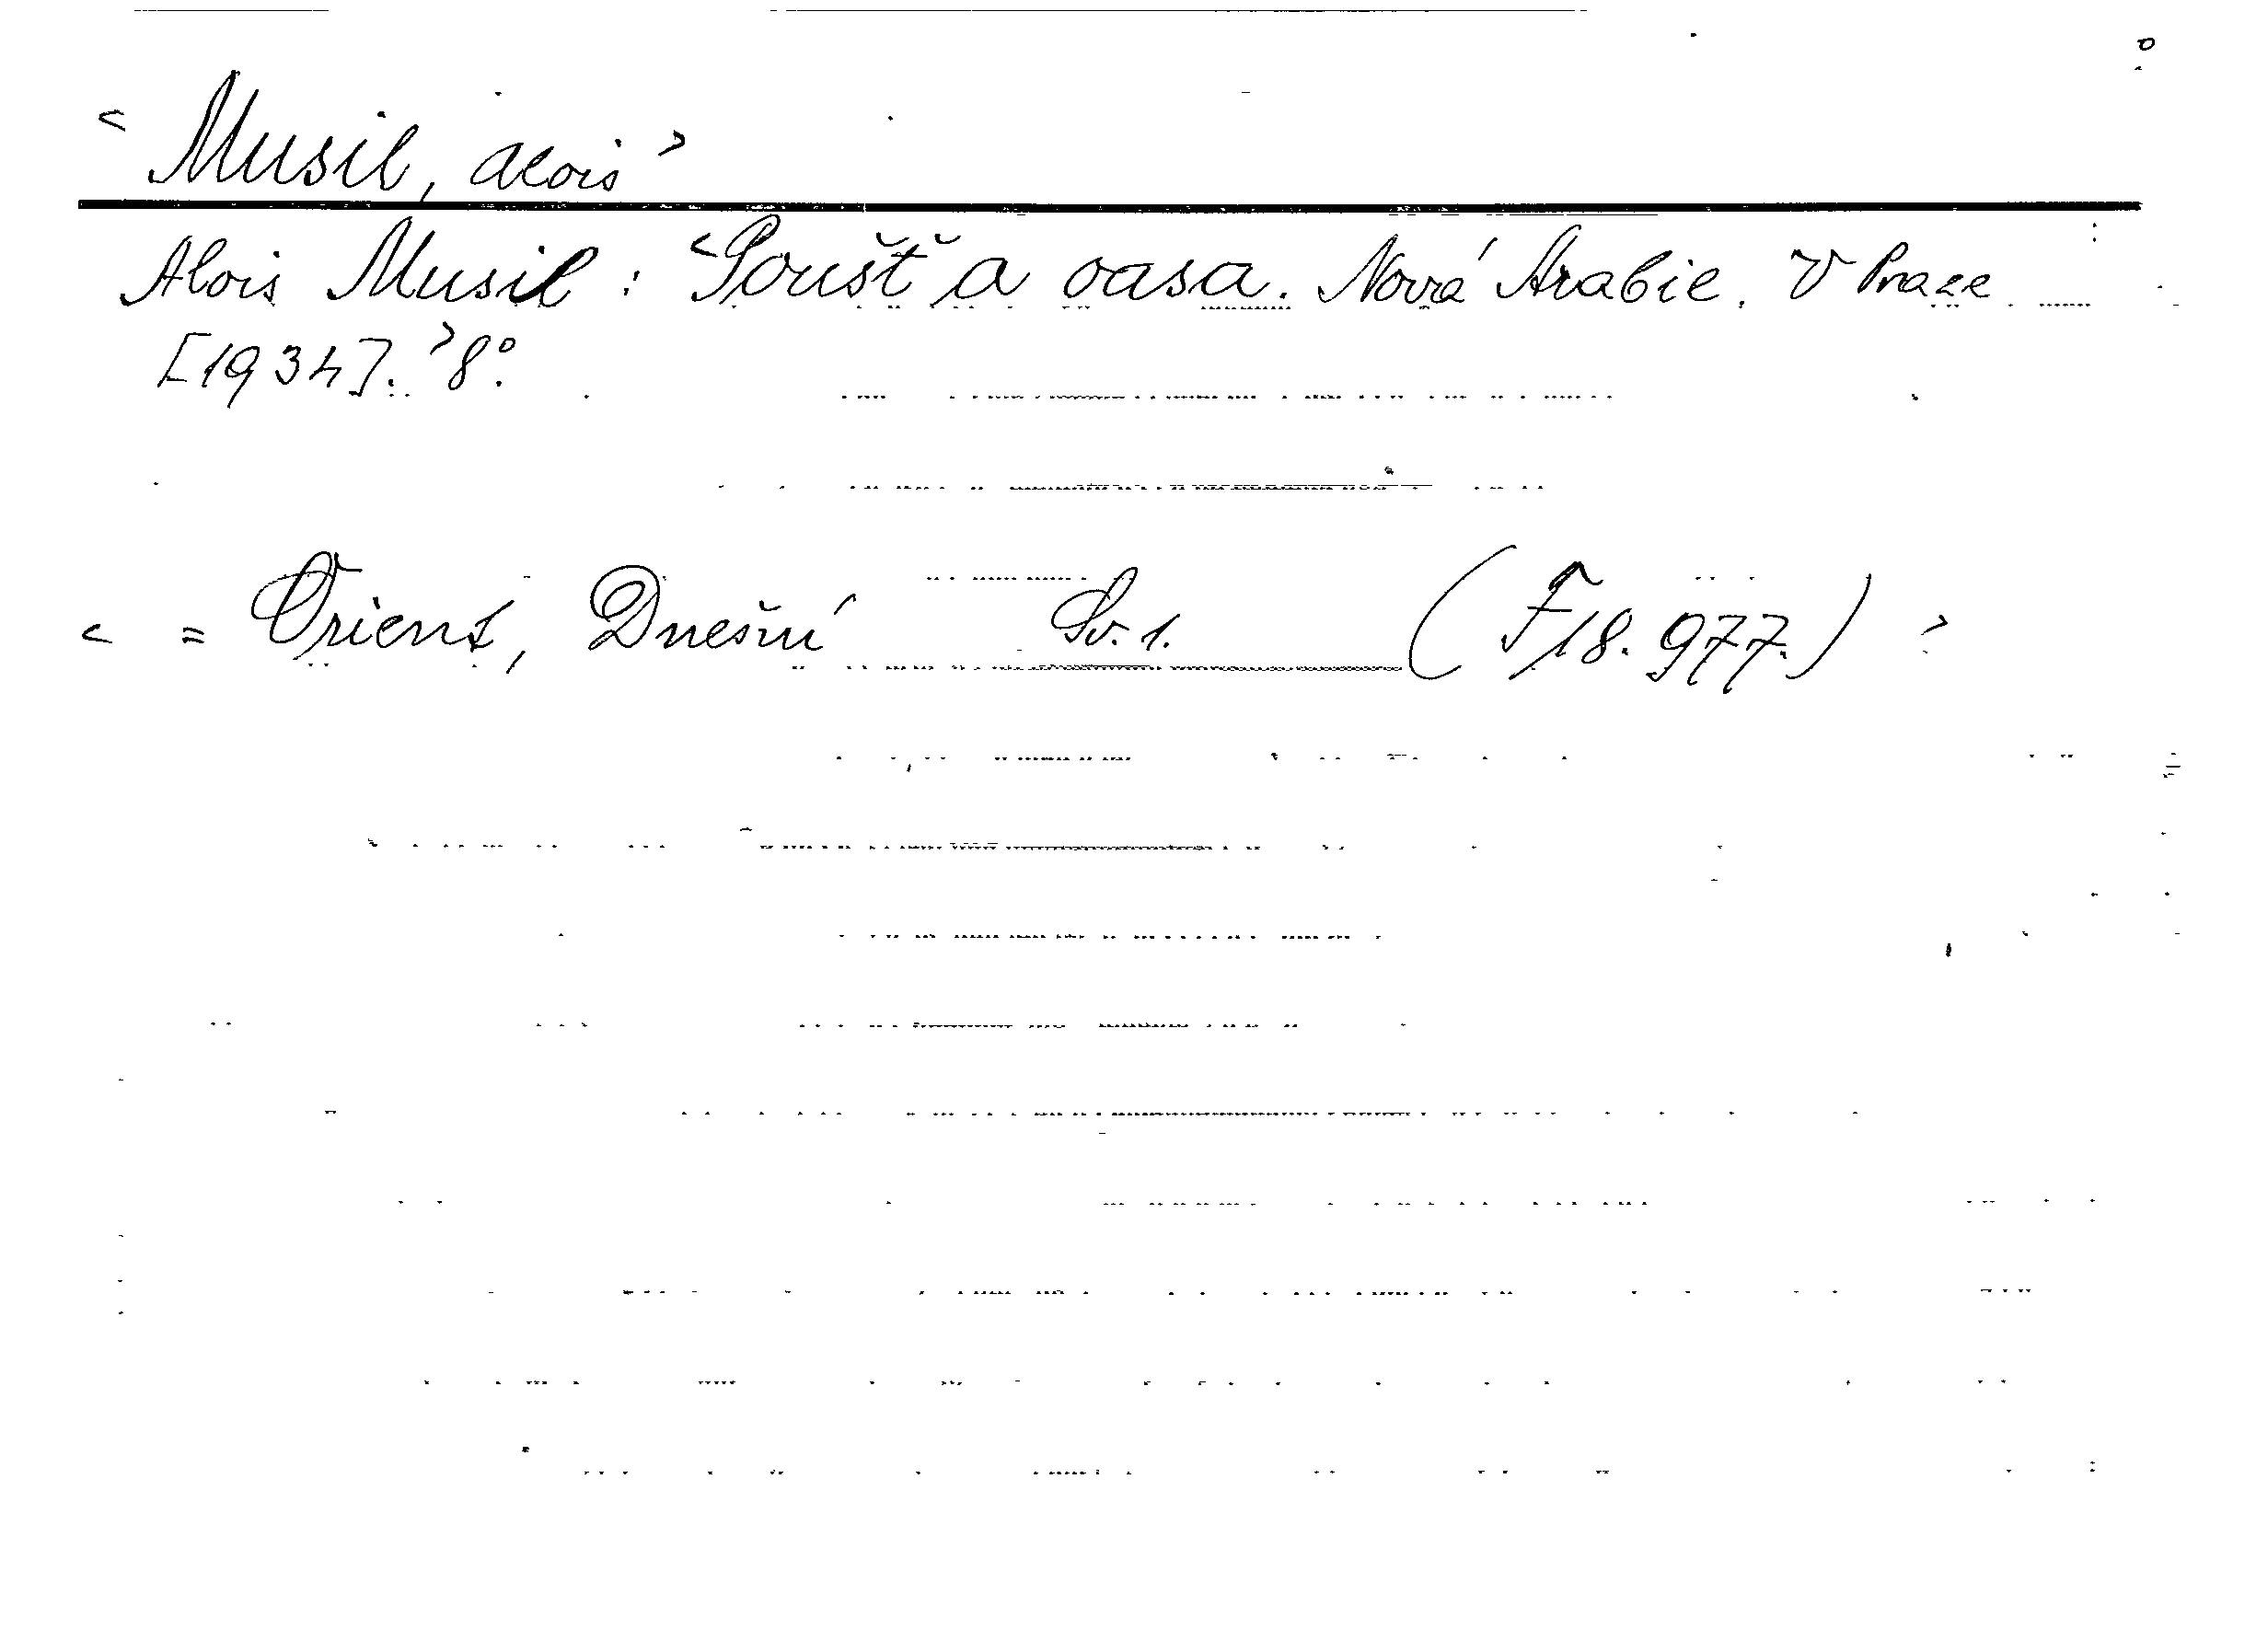 < Musil, Alois >
Alois Musil: < Poušť a oasa. Nová Arabie. V Praze
[1934]. > 8°.
< = Orient, Dnešní Sv. 1. (F 18.977.) >